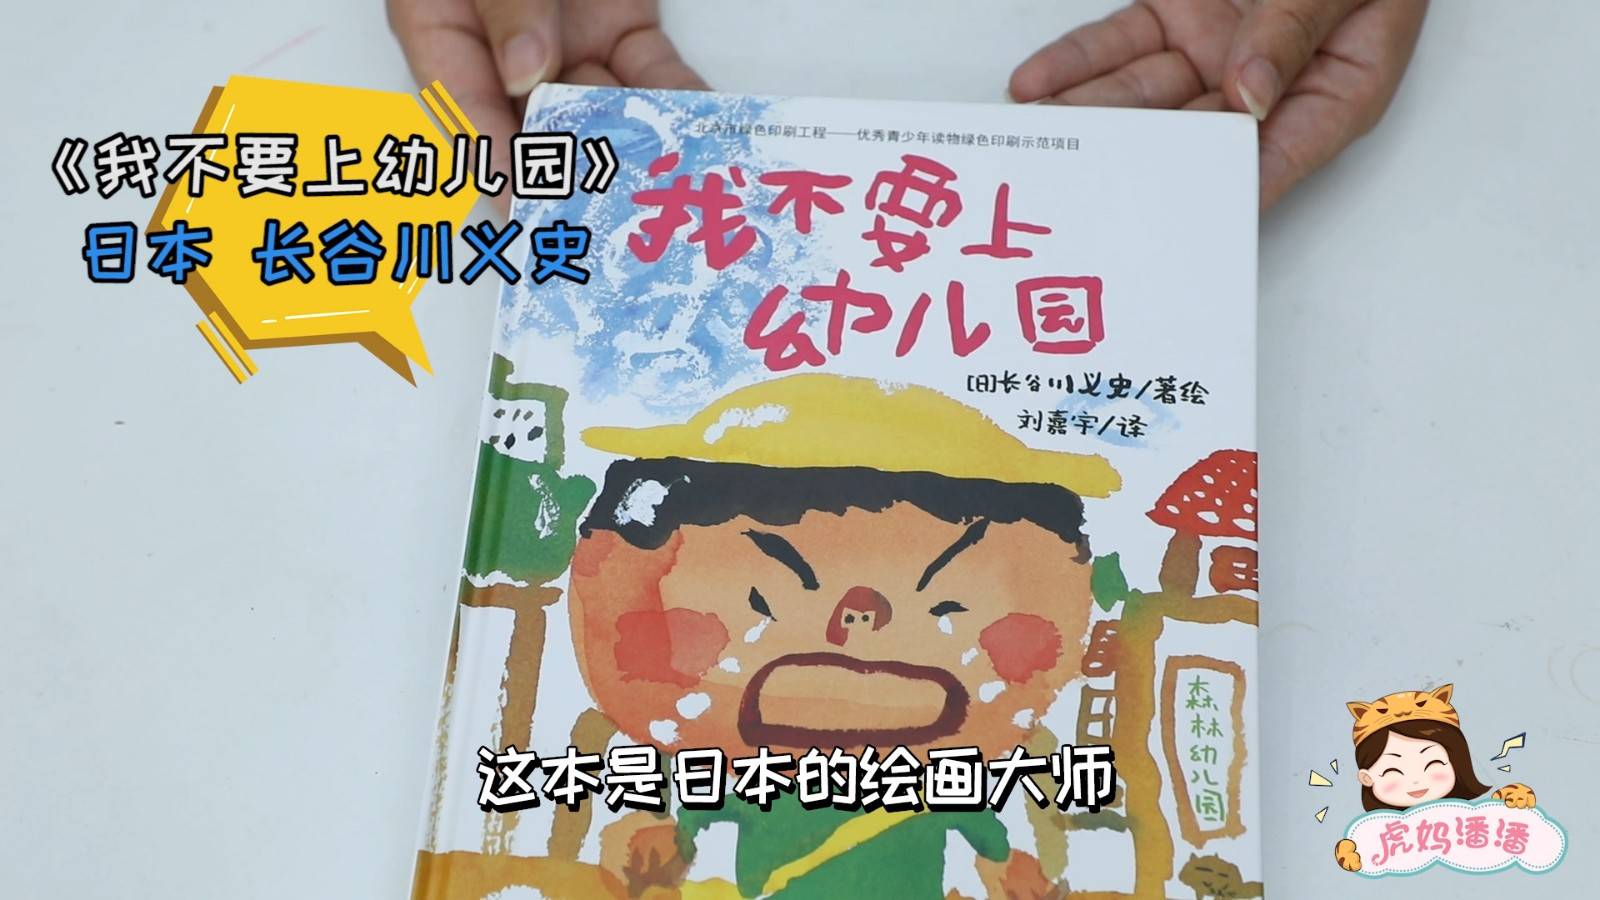 《我不要上幼儿园》
日本 长谷川义史
北京市绿色印刷工程——优秀青少年读物绿色印刷示范项目
我不要上
幼儿园
[日]长谷川义史/著绘
刘嘉宇/译
森林幼儿园
这本是日本的绘画大师
虎妈潘潘